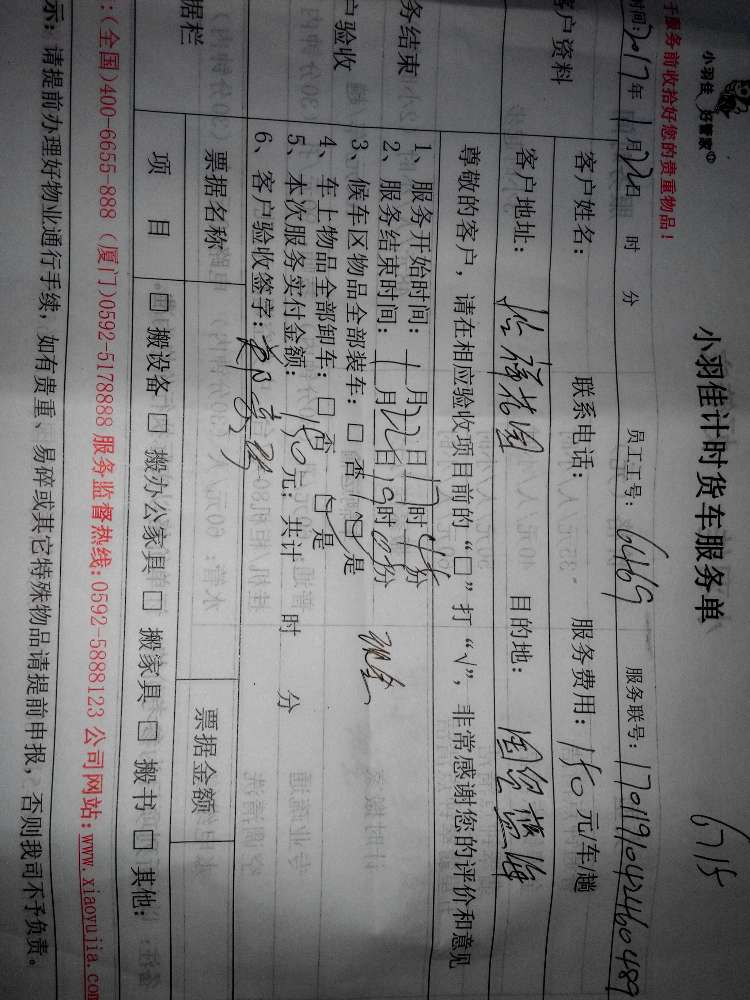 小羽佳 好管家
小羽佳计时货车服务单
6715
于服务前收拾好您的贵重物品！
时间：2017年 1月22日 时 分 员工工号：6469 服务联号：170119104244460489
客户资料
客户姓名： 联系电话： 服务费用：150元/车趟
客户地址： 花园 目的地： 国贸蓝海
尊敬的客户，请在相应验收项目前的“□”打“√”，非常感谢您的评价和意见
务结束
户验收
1、服务开始时间：1月22日17时45分
2、服务结束时间：1月22日19时 份
3、候车区物品全部装车：□否 ☑是 现金
4、车上物品全部卸车：□否 ☑是
5、本次服务实付金额：150元；共计 时 分
6、客户验收签字：
据栏
票据名称 票据金额
项 目 □ 搬设备 □ 搬办公家具 □ 搬家具 □ 搬书 □ 其他：
：(全国)400-6655-888 (厦门)0592-5178888 服务监督热线：0592-5888123 公司网站：www.xiaoyujia.com
示：请提前办理好物业通行手续，如有贵重、易碎或其它特殊物品请提前申报，否则我司不予负责。